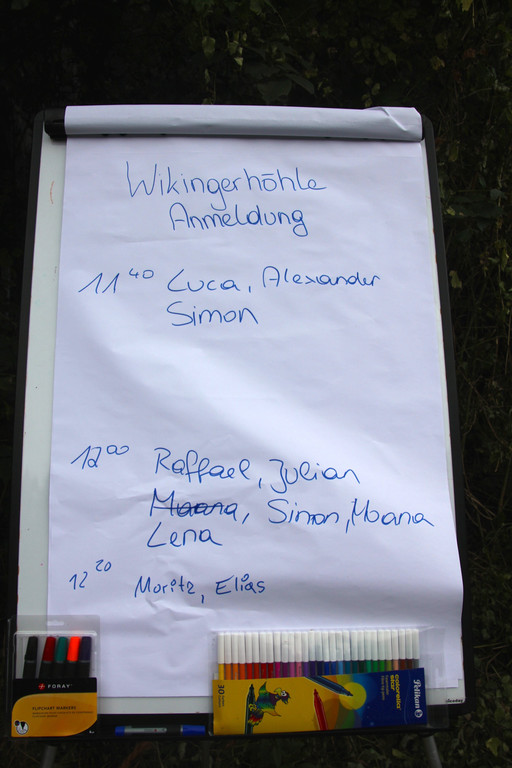 Wikingerhöhle
Anmeldung
11⁴⁰ Luca, Alexander
Simon
12⁰⁰ Raffael, Julian
Moana, Simon, Moana
Lena
12²⁰ Moritz, Elias
FORAY
FLIPCHART MARKERS
30
colorella
star
Pelikan